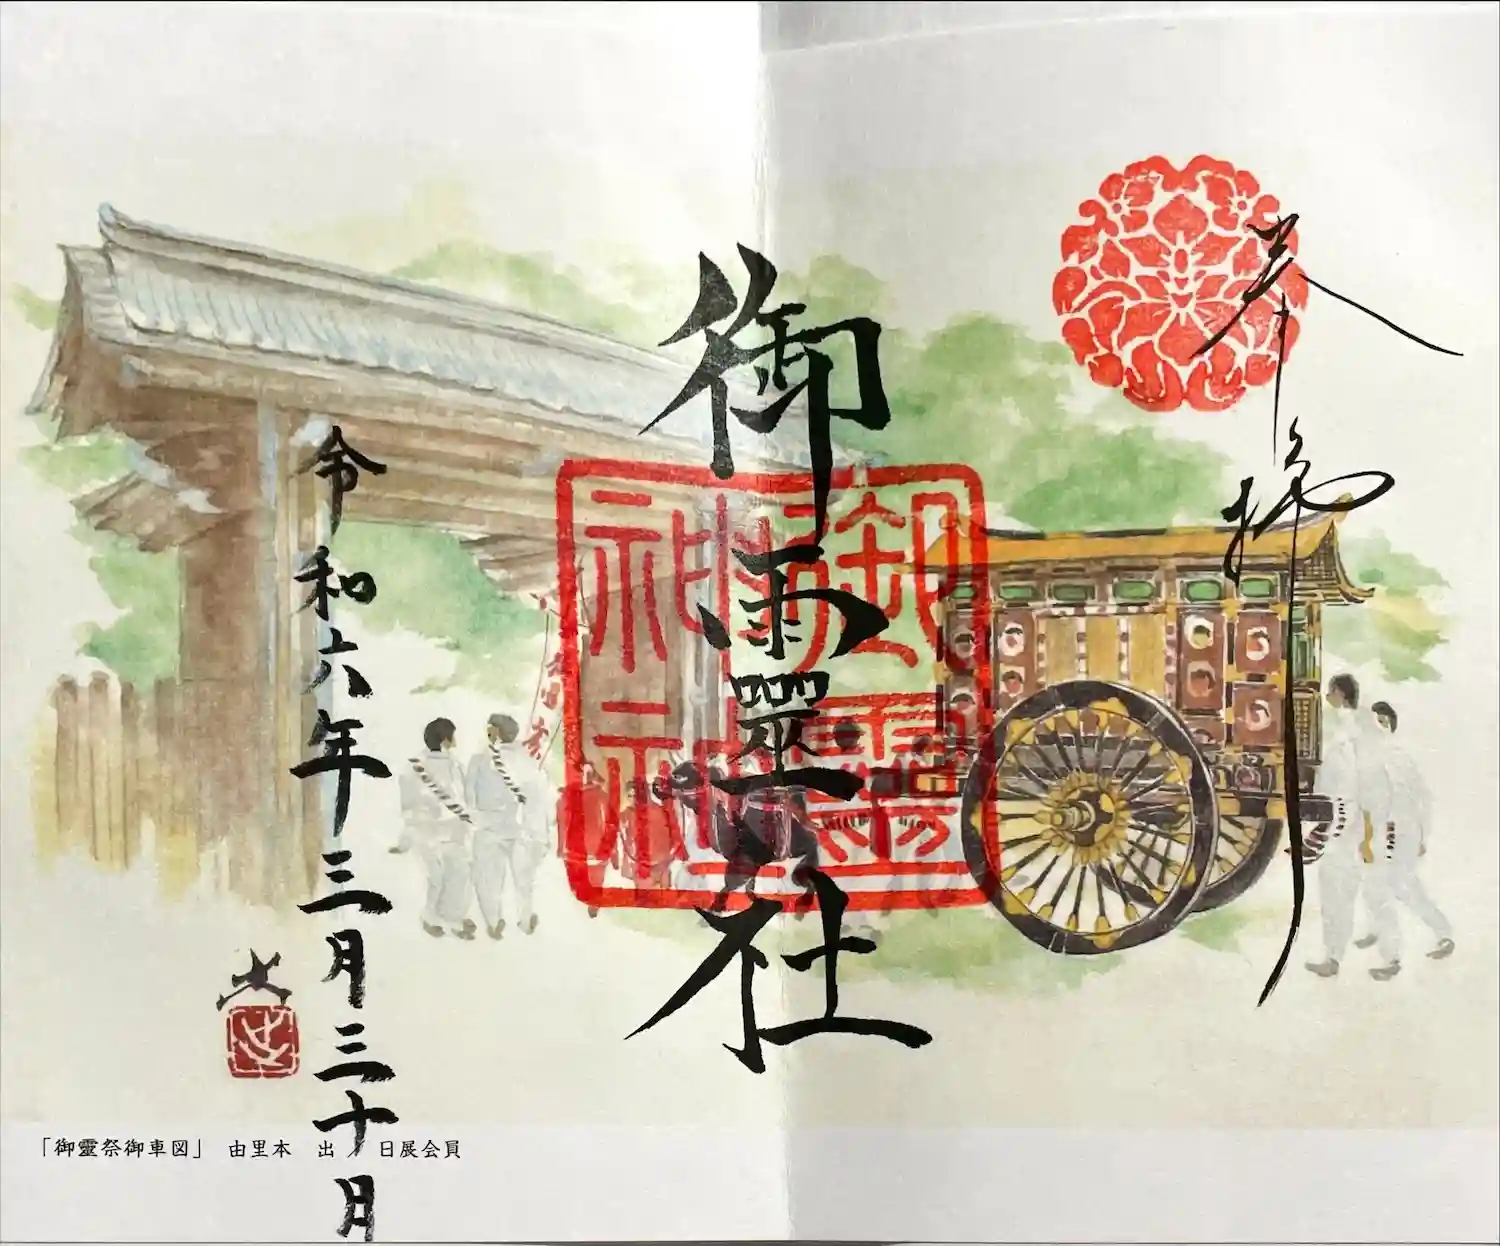 奉拝
御靈社
御靈神社
令和六年三月三十日
「御靈祭御車図」 由里本 出 日展会員